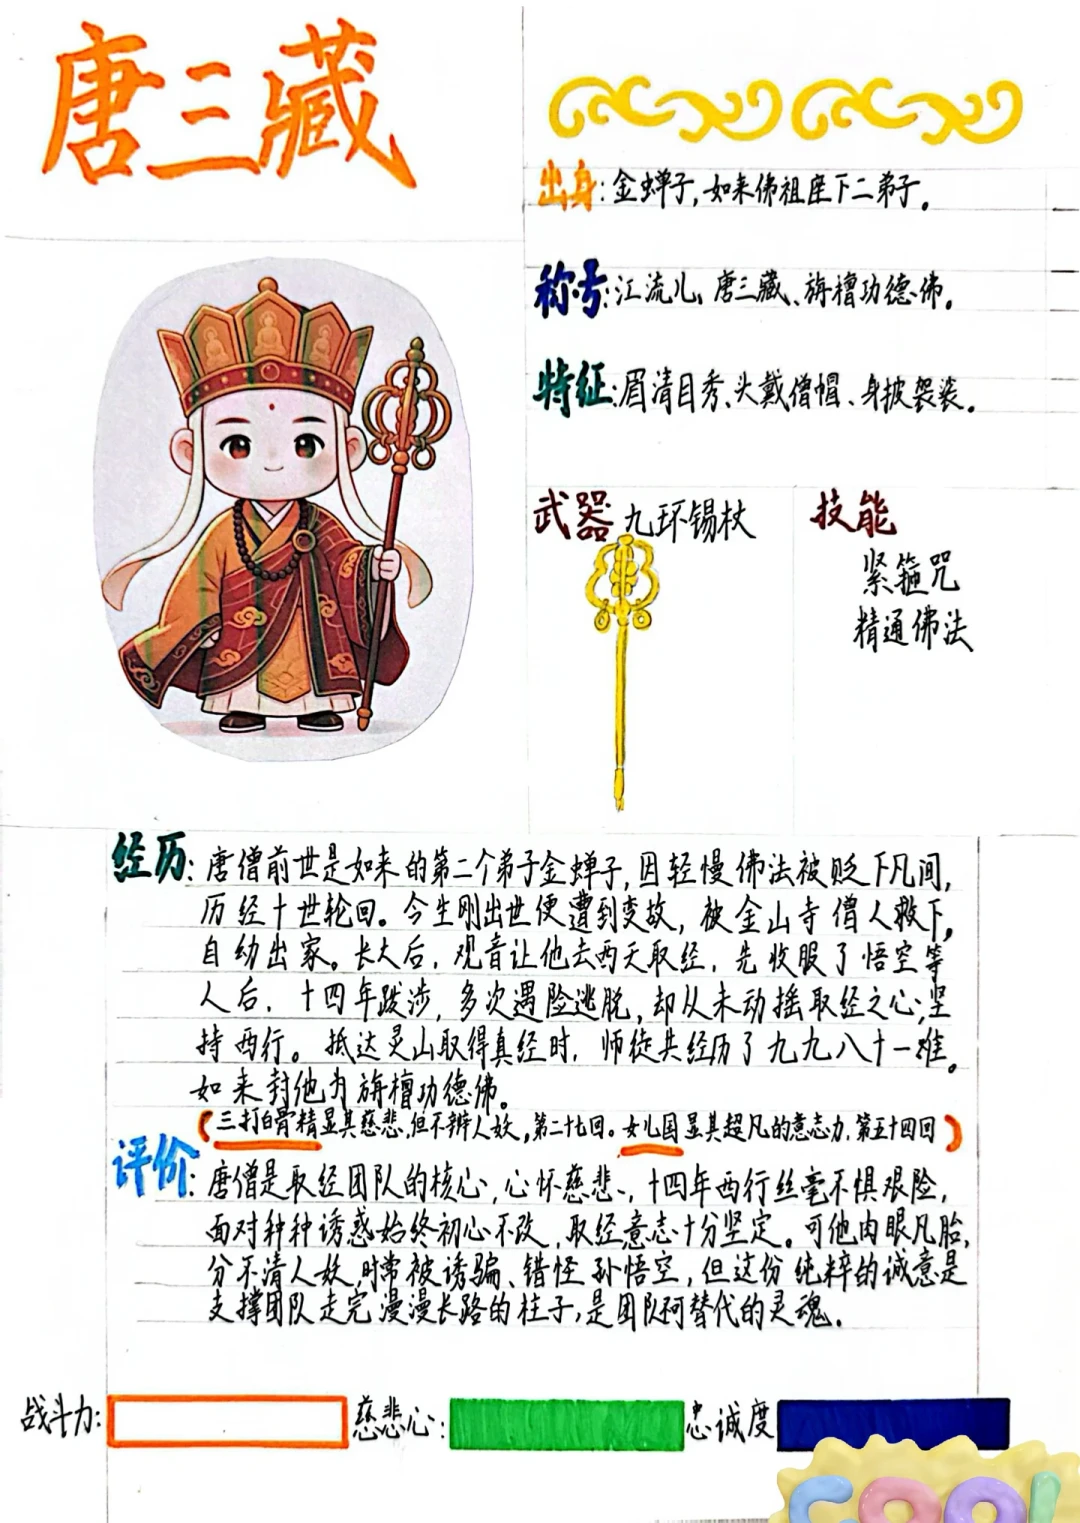 唐三藏
出身:金蝉子,如来佛祖座下二弟子。
称号:江流儿、唐三藏、旃檀功德佛。
特征:眉清目秀、头戴僧帽、身披袈裟。
武器 九环锡杖
技能
紧箍咒
精通佛法
经历:唐僧前世是如来的第二个弟子金蝉子,因轻慢佛法被贬下凡间,
历经十世轮回。今生刚出世便遭到变故,被金山寺僧人救下,
自幼出家。长大后,观音让他去西天取经,先收服了悟空等
人后,十四年跋涉,多次遇险逃脱,却从未动摇取经之心;坚
持西行。抵达灵山取得真经时,师徒共经历了九九八十一难。
如来封他为旃檀功德佛。
(三打白骨精显其慈悲,但不辨人妖,第二十七回。女儿国显其超凡的意志力,第五十四回)
评价:唐僧是取经团队的核心,心怀慈悲、十四年西行丝毫不惧艰险,
面对种种诱惑始终初心不改,取经意志十分坚定。可他肉眼凡胎,
分不清人妖,时常被诱骗、错怪孙悟空,但这份纯粹的诚意是
支撑团队走完漫漫长路的柱子,是团队可替代的灵魂.
战斗力: 慈悲心: 忠诚度
COOL